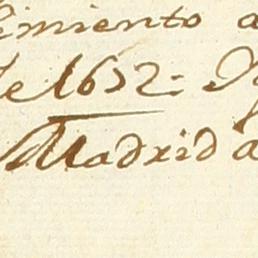 imiento a
de 1652:
Madrid a